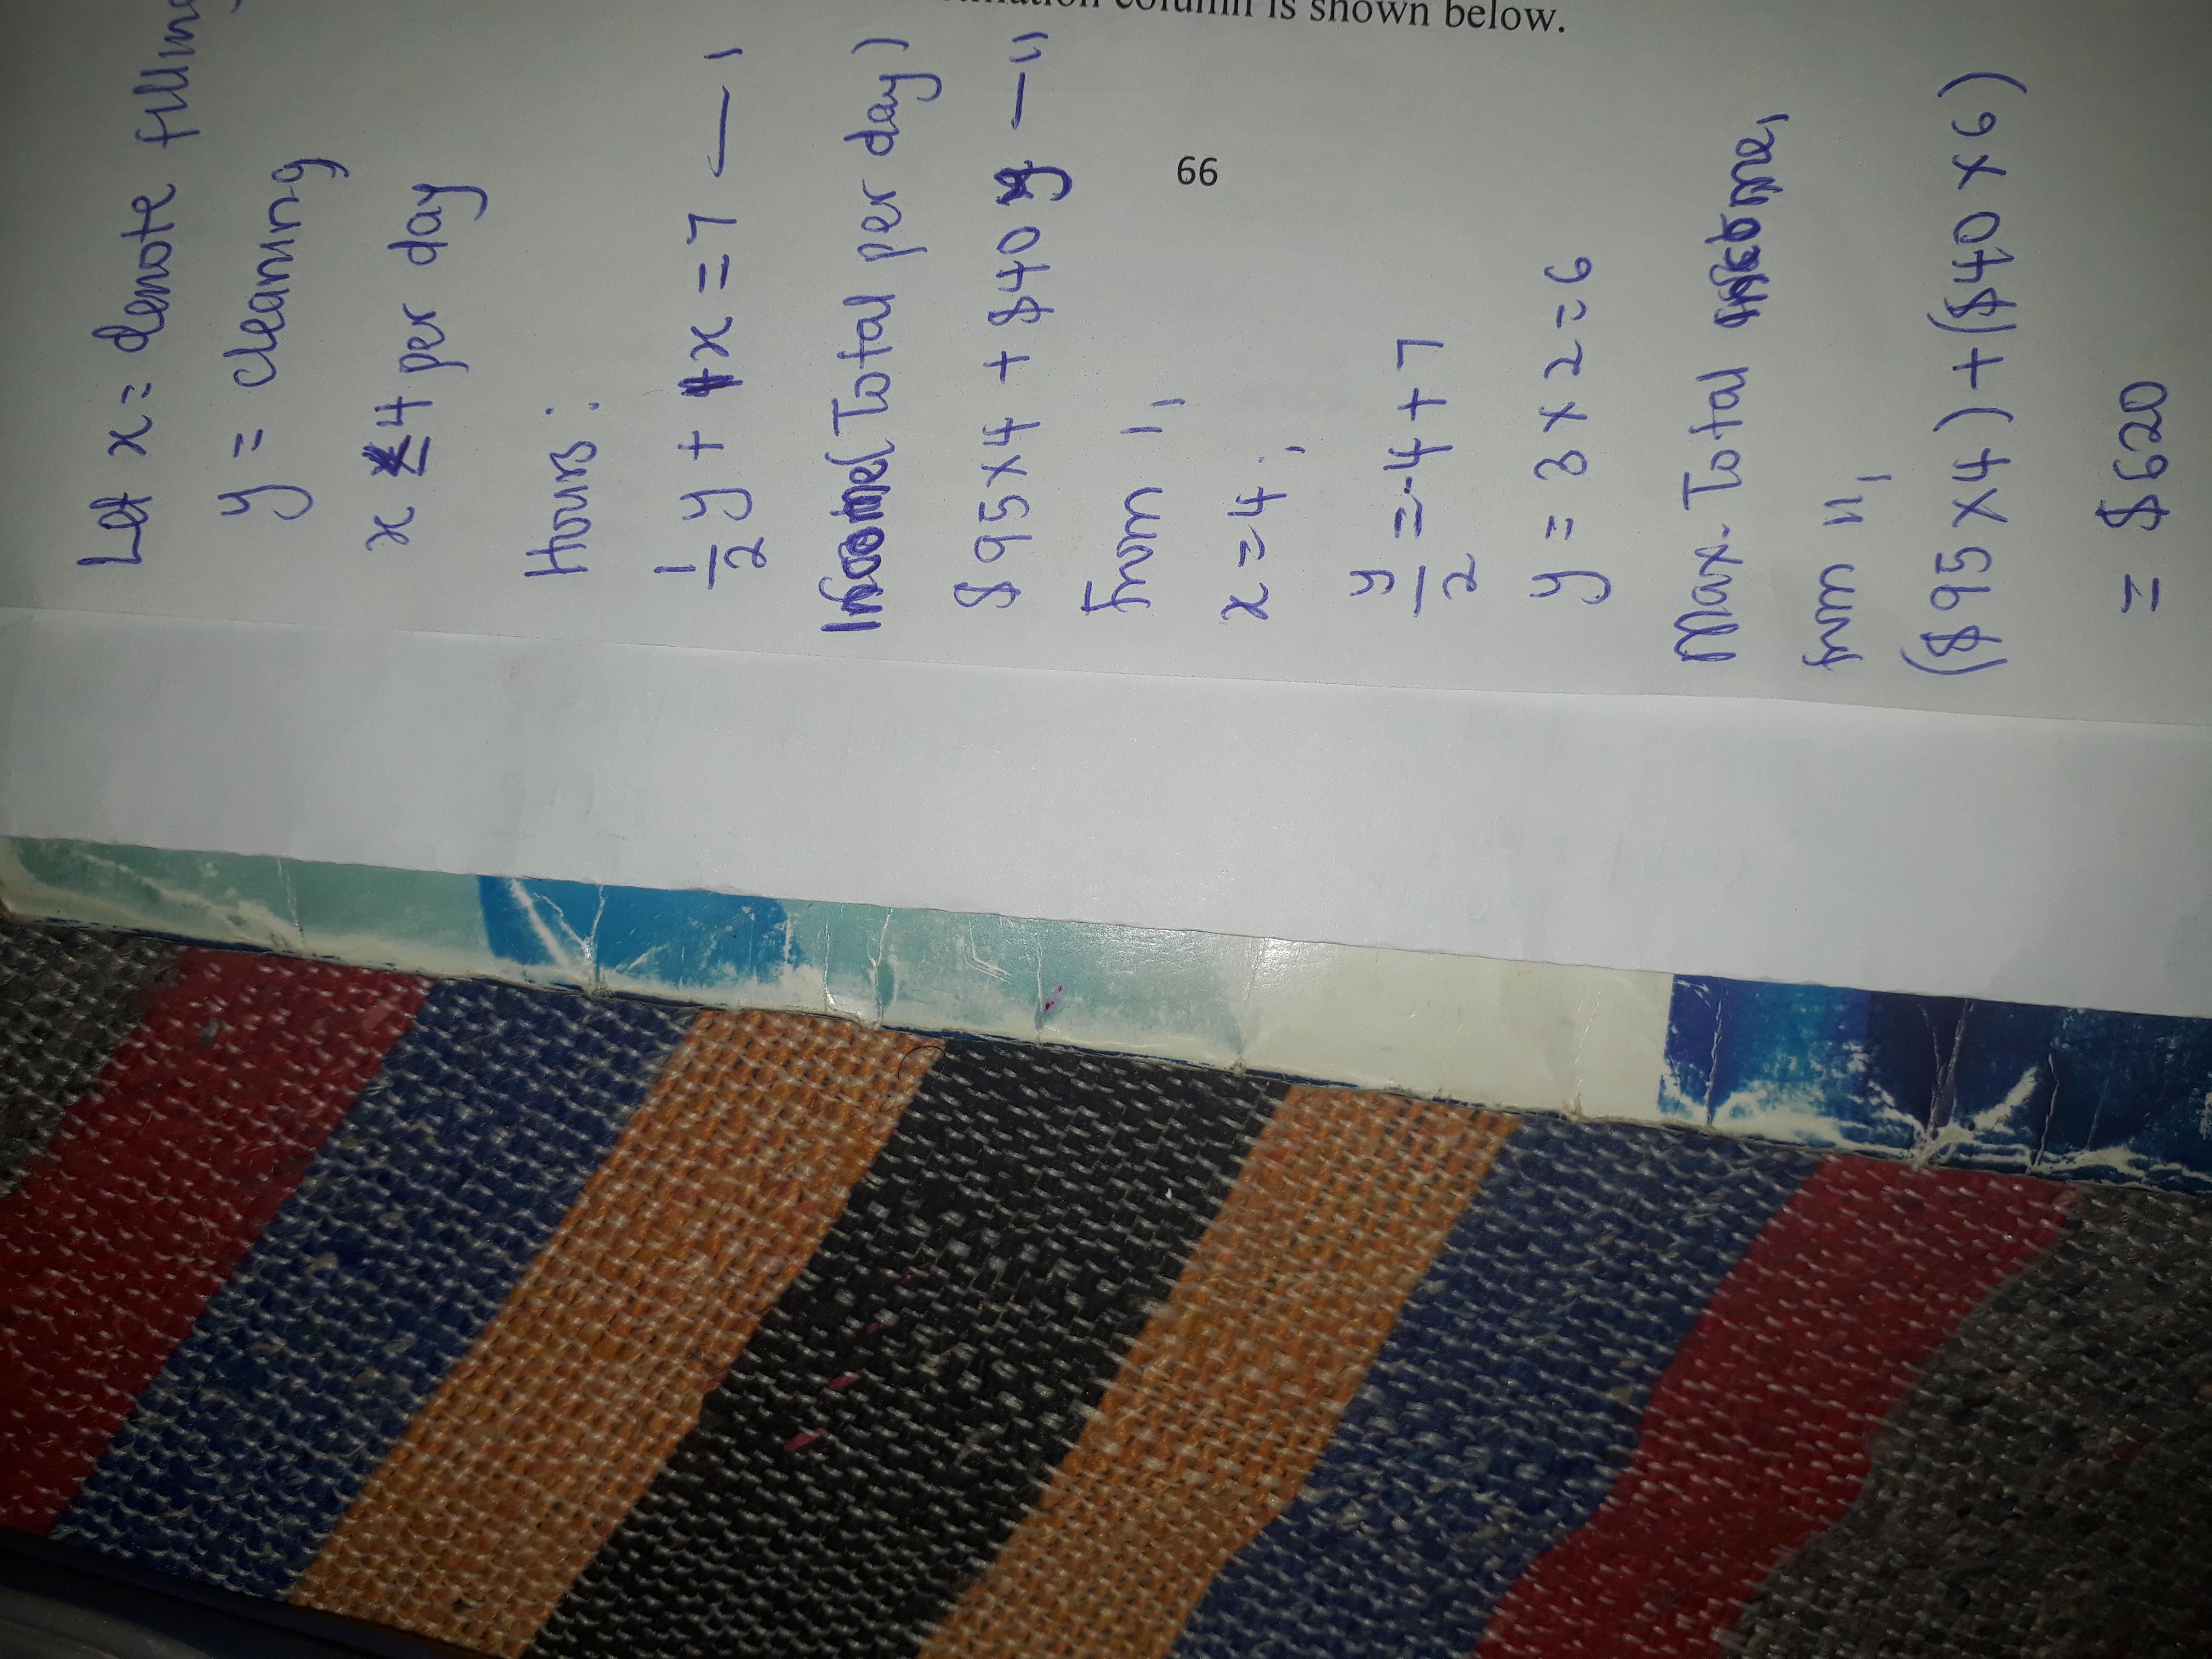 mation column is shown below.
66
Let x = denote filling
y = cleaning
x ≤ 4 per day
Hours:
1/2 y + x = 7 — 1
Income (Total per day)
$95x4 + $40y — 11
From 1,
x = 4;
y/2 = -4 + 7
y = 3 x 2 = 6
Max. Total income,
from 11,
($95 x 4) + ($40 x 6)
= $620